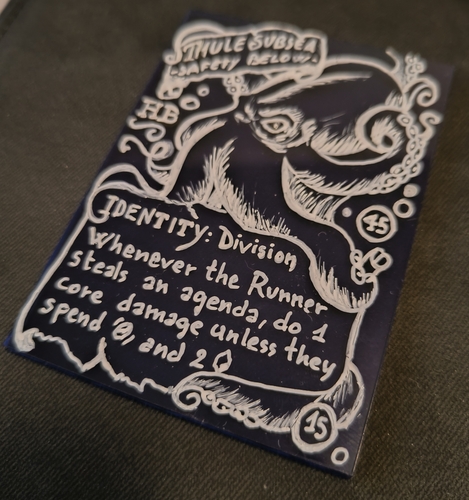 THULE SUBSEA
-SAFETY BELOW-
HB
45
IDENTITY: Division
Whenever the Runner
steals an agenda, do 1
core damage unless they
spend , and 2
15